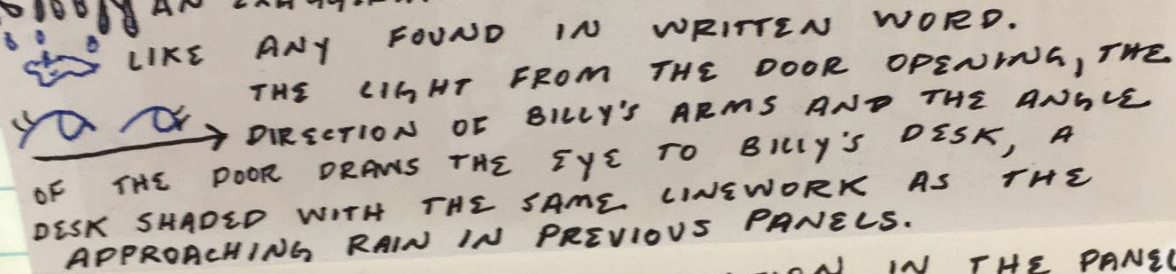 LIKE ANY FOUND IN WRITTEN WORD.
THE LIGHT FROM THE DOOR OPENING, THE
DIRECTION OF BILLY'S ARMS AND THE ANGLE
OF THE DOOR DRAWS THE EYE TO BILLY'S DESK, A
DESK SHADED WITH THE SAME LINEWORK AS THE
APPROACHING RAIN IN PREVIOUS PANELS.
IN THE